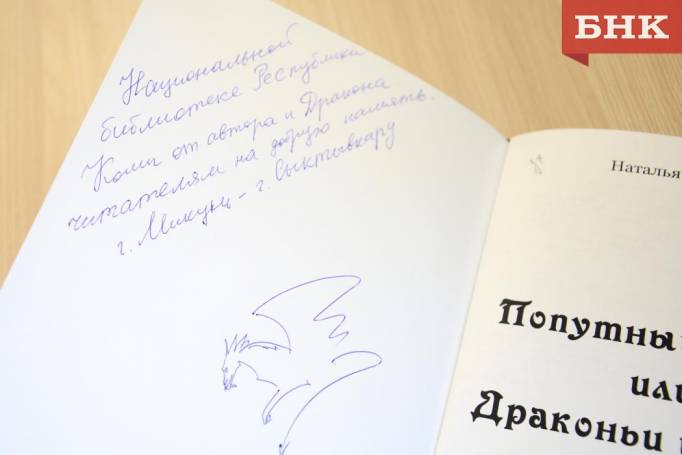 БНК
Национальной
библиотеке Республики
Коми от автора и Дракона
читателям на добрую память.
г. Микунь - г. Сыктывкару
Наталья
Попутны
или
Драконьи